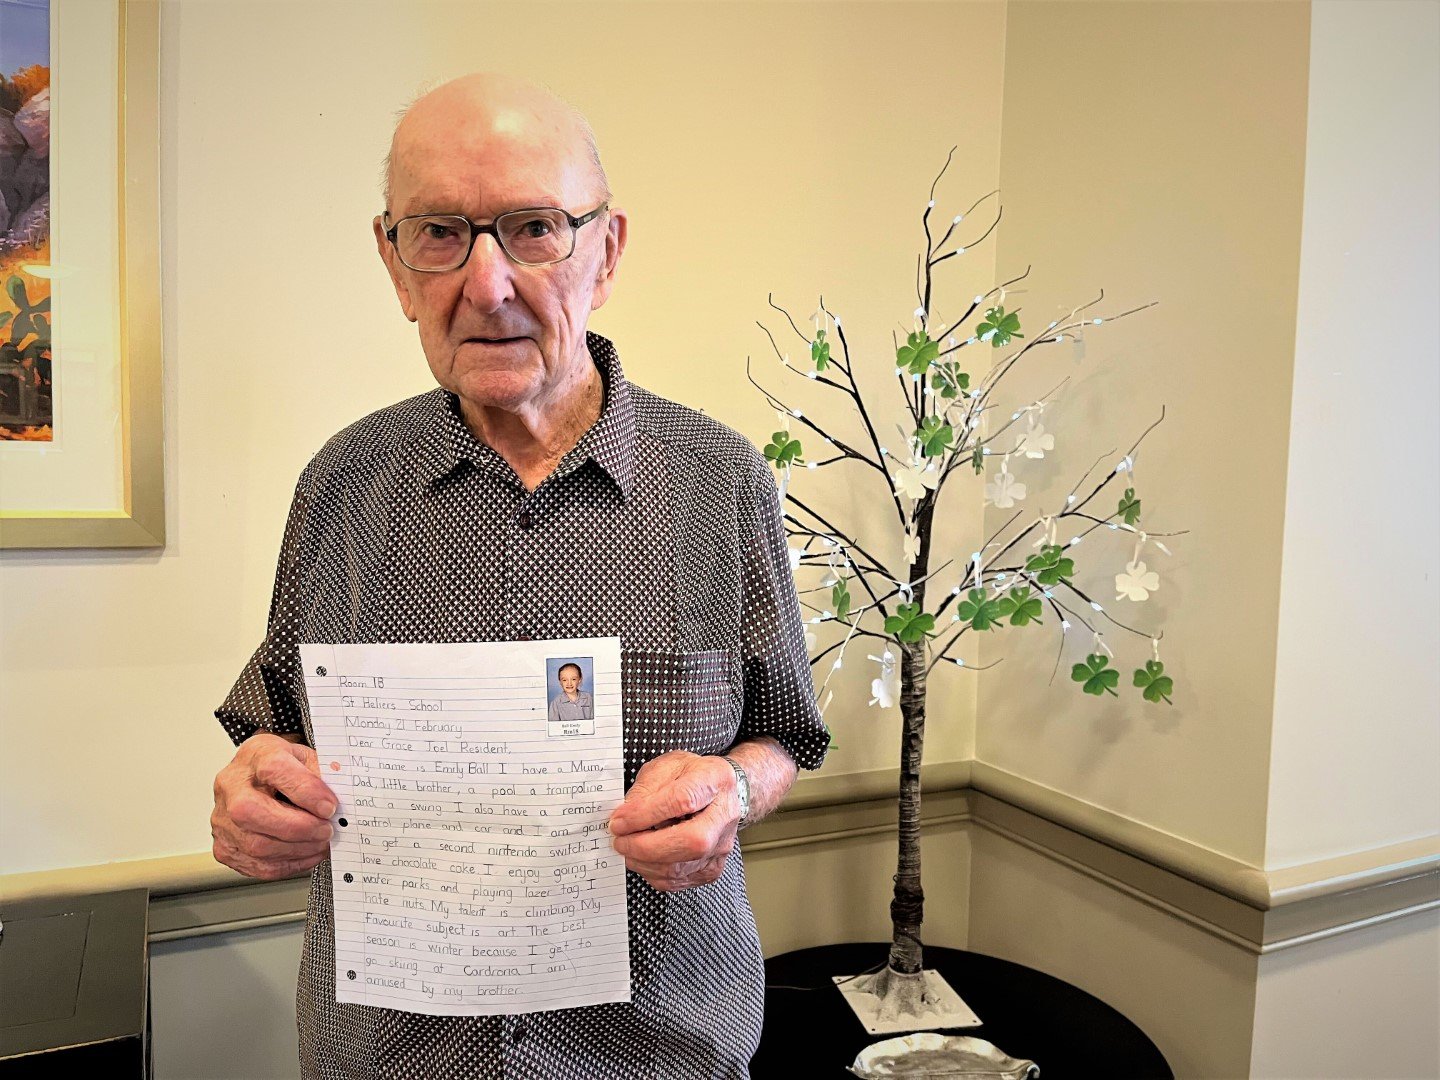 Room 1B
St Heliers School
Monday 21 February
Dear Grace Joel Resident,
My name is Emily Ball I have a Mum,
Dad, little brother, a pool a trampoline
and a swing. I also have a remote
control plane and car and I am going
to get a second nintendo switch. I
love chocolate cake. I enjoy going to
water parks and playing lazer tag. I
hate nuts. My talent is climbing. My
Favourite subject is art. The best
season is winter because I get to
go skiing at Cardrona. I am
amused by my brother.